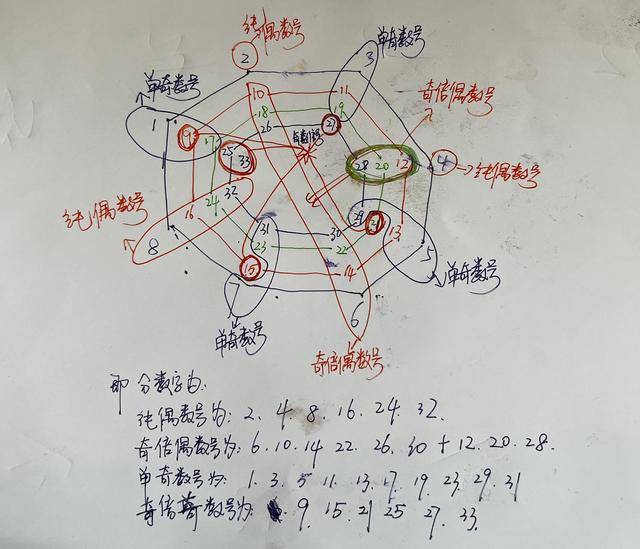 纯偶数号
单奇数号
单奇数号
奇倍偶数号
2
3
1
10
11
18
19
26
27
9
17
25
33
28
20
12
4
纯偶数号
纯偶数号
32
24
16
8
29
21
13
5
31
30
23
22
15
14
7
6
单奇数号
单奇数号
奇倍偶数号
即分数字为:
纯偶数号为: 2. 4. 8. 16. 24. 32.
奇倍偶数号为: 6. 10. 14 22. 26. 30 + 12. 20. 28.
单奇数号为: 1. 3. 5 11. 13. 17. 19. 23. 29. 31
奇倍奇数号为: 9. 15. 21 25 27. 33.